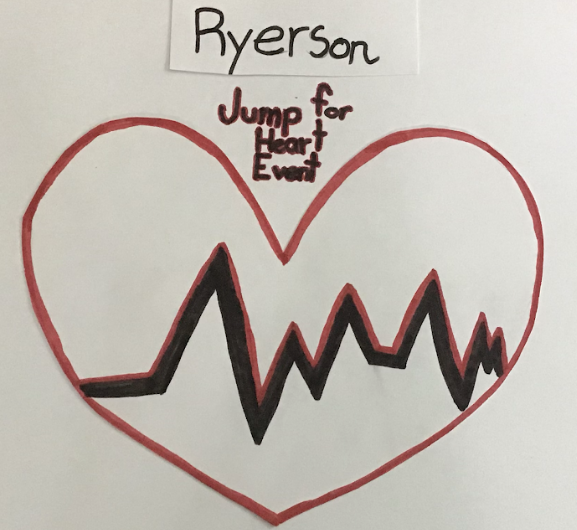 Ryerson
Jump for
Heart
Event